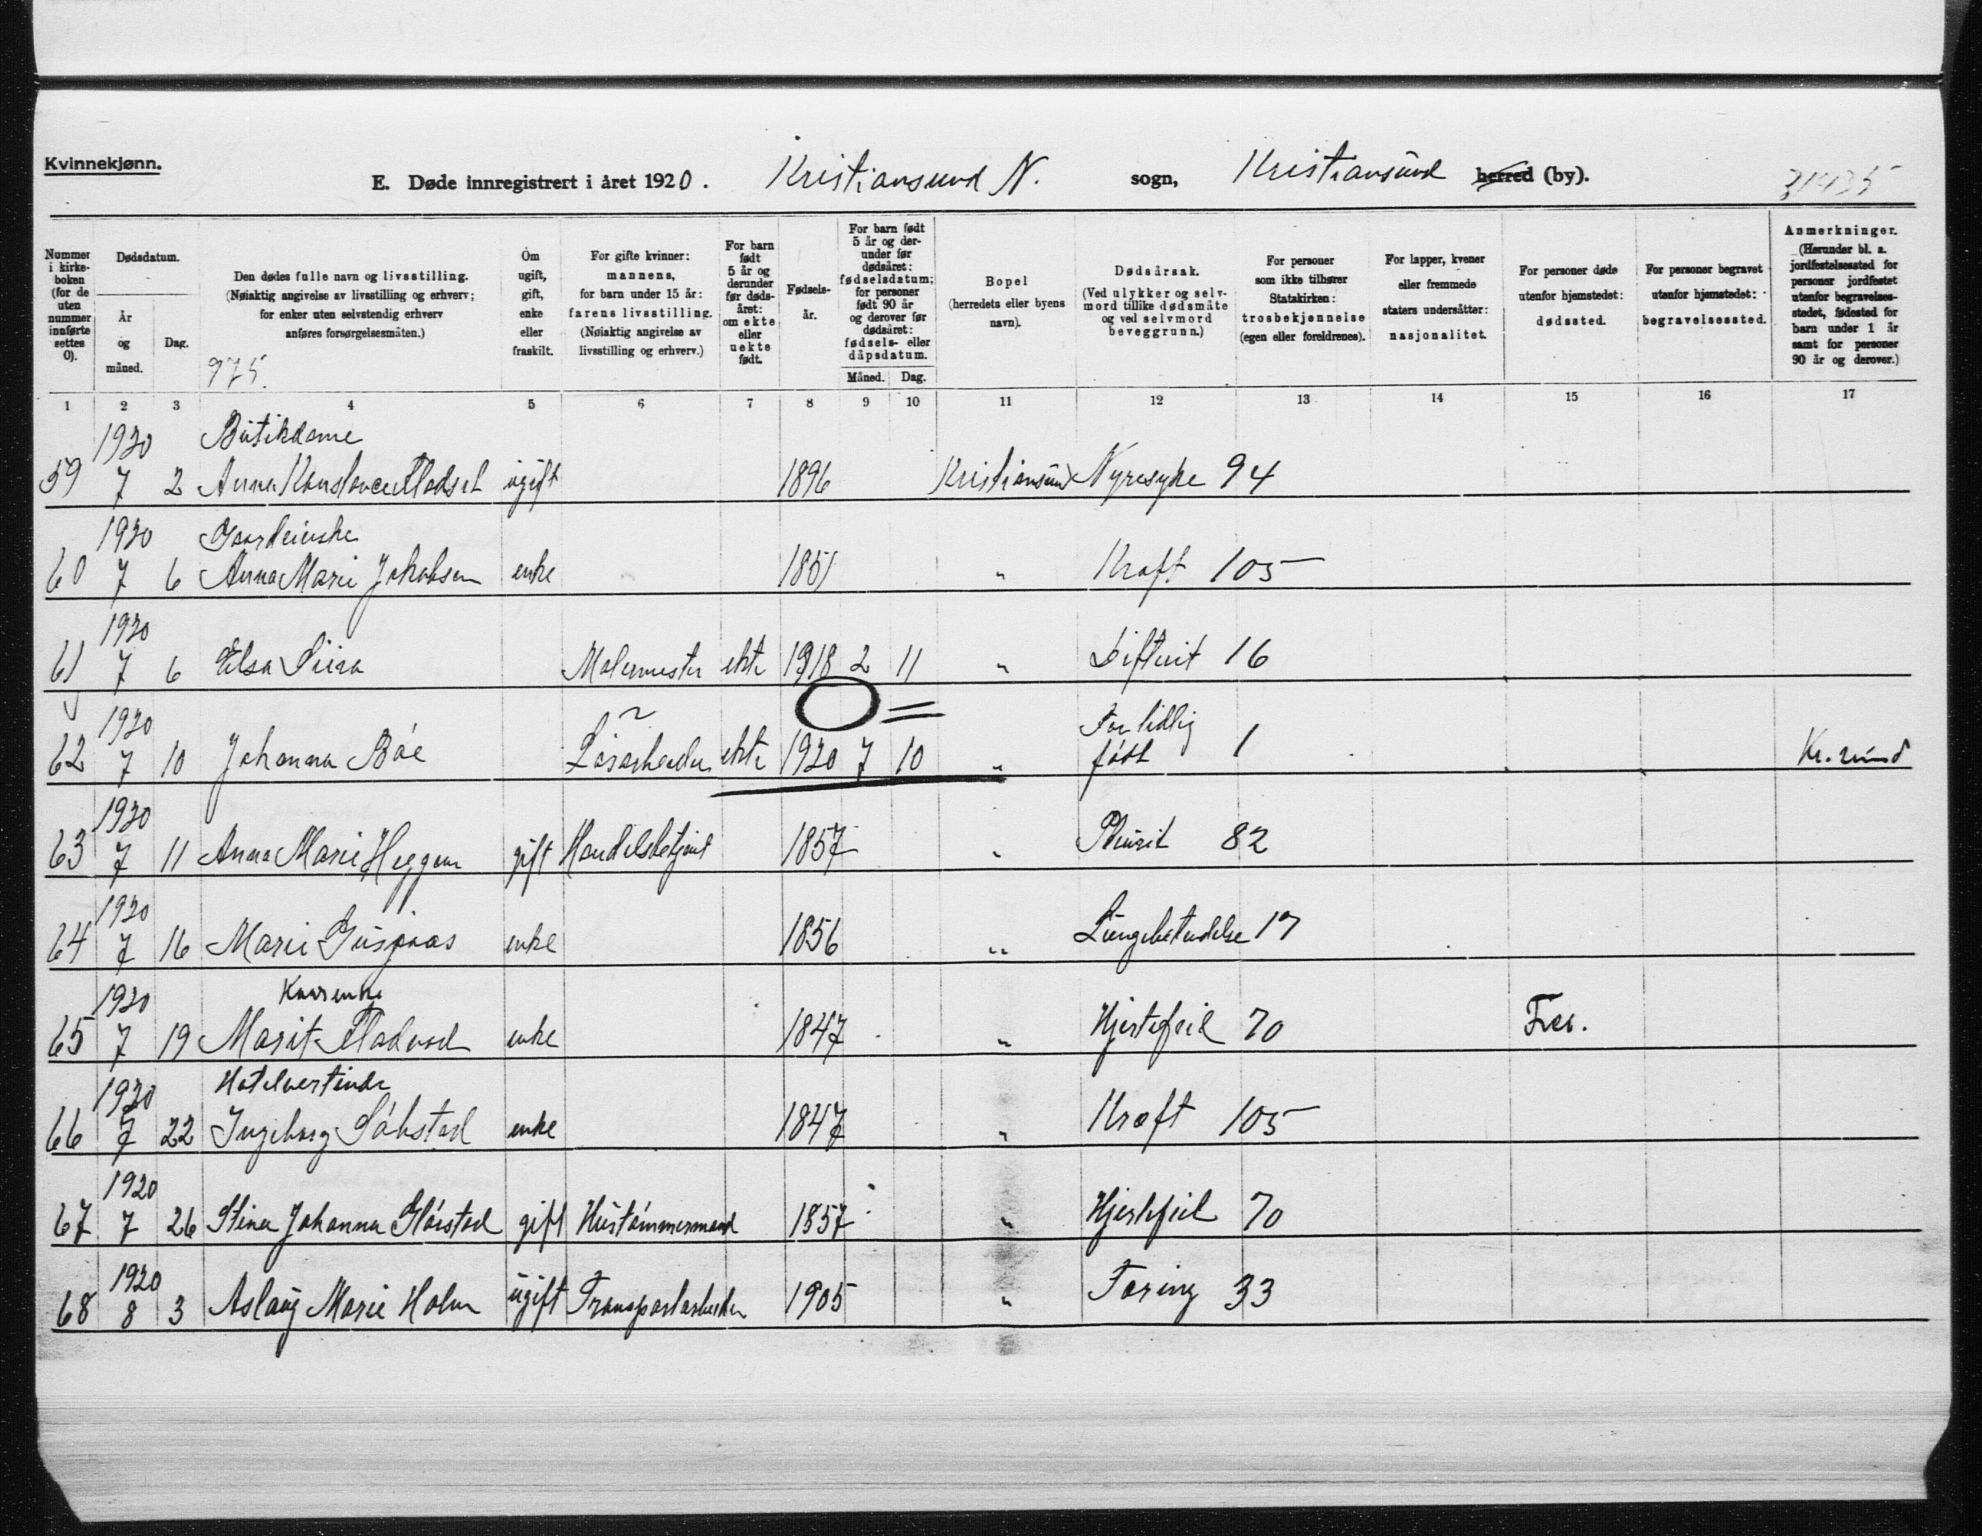 Kvinnekjønn.
E. Døde innregistrert i året 1920. Kristiansund N. sogn, Kristiansund herred (by).
Nummer i kirkeboken (for de uten nummer innførte settes 0).
Dødsdatum.
År og måned.
Dag.
Den dødes fulle navn og livsstilling.
(Nøiaktig angivelse av livsstilling og erhverv;
for enker uten selvstendig erhverv
anføres forsørgelsesmåten.)
975.
Om ugift, gift, enke eller fraskilt.
For gifte kvinner: mannens, for barn under 15 år: farens livsstilling. (Nøiaktig angivelse av livsstilling og erhverv.)
For barn født 5 år og derunder før dødsåret: om ekte eller uekte født.
Fødselsår.
For barn født 5 år og derunder før dødsåret: fødselsdatum; for personer født 90 år og derover før dødsåret: fødsels- eller dåpsdatum.
Måned. Dag.
Bopel (herredets eller byens navn).
Dødsårsak. (Ved ulykker og selvmord tillike dødsmåte og ved selvmord beveggrunn.)
For personer som ikke tilhører Statskirken: trosbekjennelse (egen eller foreldrenes).
For lapper, kvener eller fremmede staters undersåtter: nasjonalitet.
For personer døde utenfor hjemstedet: dødssted.
For personer begravet utenfor hjemstedet: begravelsessted.
Anmerkninger. (Herunder bl. a. jordfestelsessted for personer jordfestet utenfor begravelsesstedet, fødested for barn under 1 år samt for personer 90 år og derover.)
1 2 3 4 5 6 7 8 9 10 11 12 13 14 15 16 17
1920 Butikdame
59 7 2 Anna ugift 1896 Kristiansund Nyresyke 94
1920
60 7 6 Anna Marie Jakobsen enke 1851 " Kræft 105
1920
61 7 6 Elsa Malermester ekte 1918 2 11 " Difterit 16
1920 For tidlig
62 7 10 Johanna Bøe Løsarbeider ekte 1920 7 10 " født 1 Kr.sund
1920
63 7 11 Anna Marie Heggem gift Handelsbetjent 1857 " Pleurit 82
1920
64 7 16 Marie enke 1856 " Lungebetendelse 17
1920 Kaarenke
65 7 19 Marit enke 1847 " Hjertefeil 70 Frei.
1920 Hotelvertinde
66 7 22 Ingeborg enke 1847 " Kræft 105
1920
67 7 26 Stina Johanna gift Hustømmermand 1857 " Hjertefeil 70
1920
68 8 3 Aslaug Marie Holm ugift Transportarbeider 1905 " Tæring 33